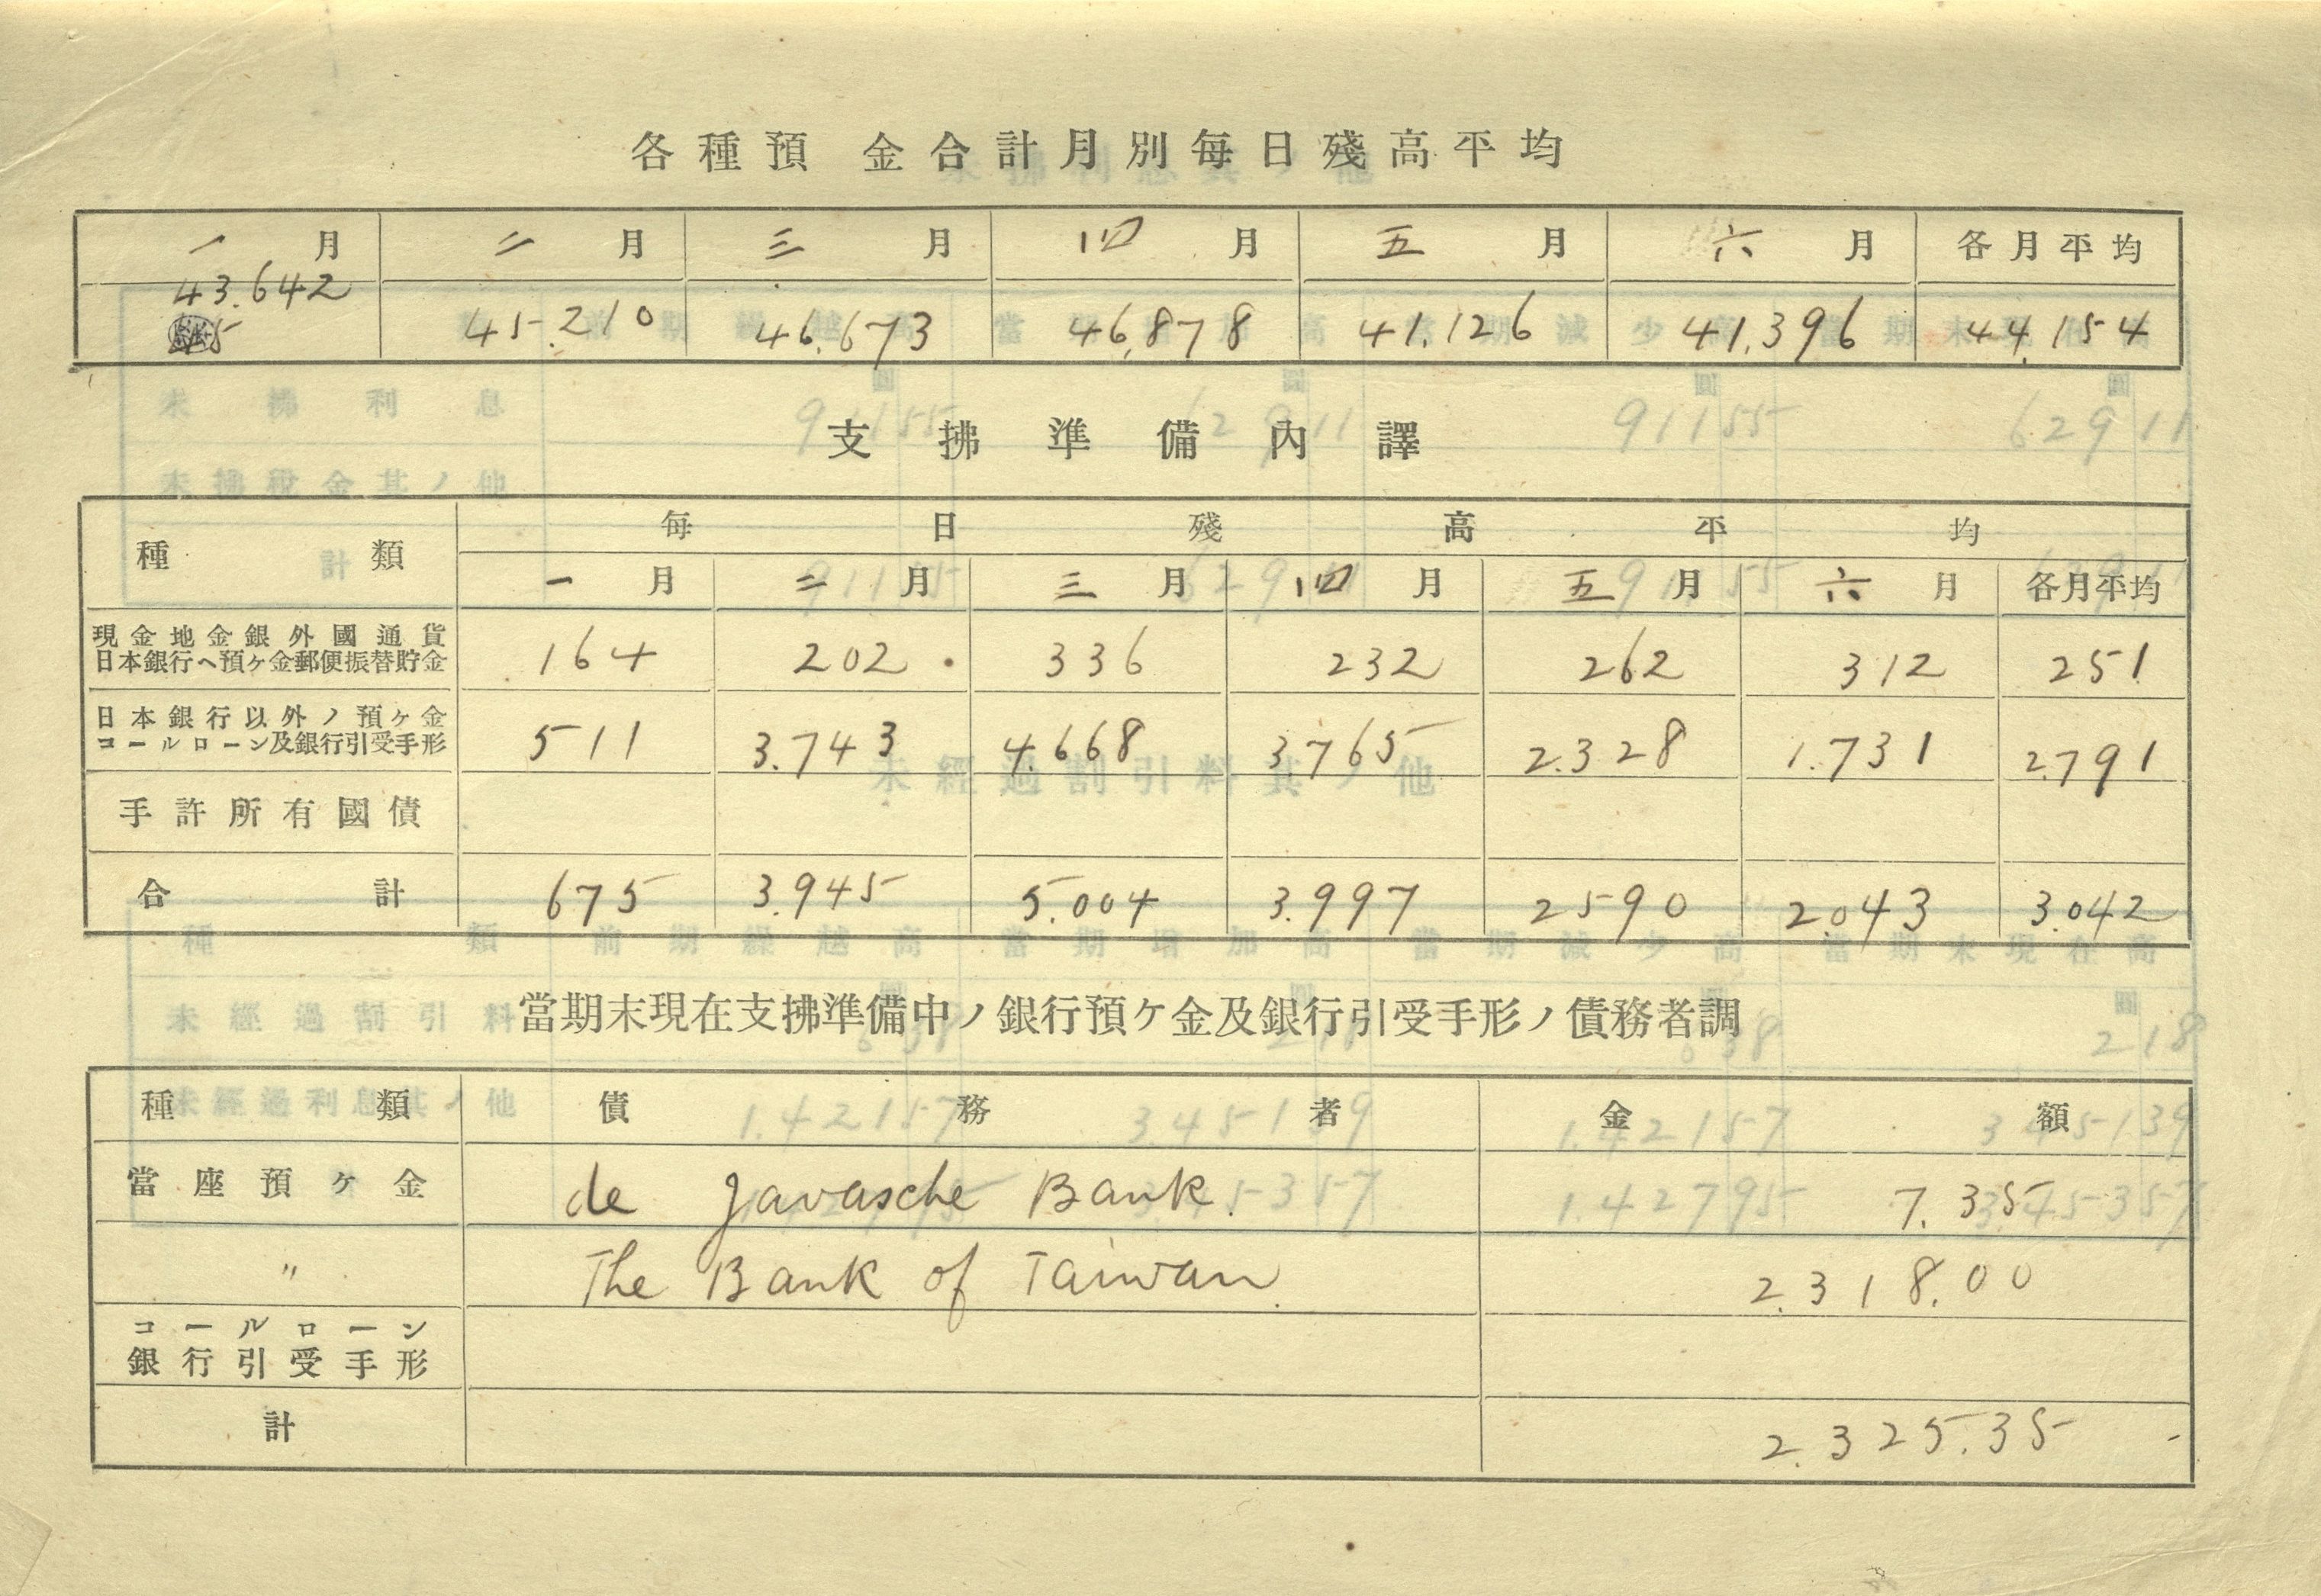 各種預金合計月別每日殘高平均
一月 二月 三月 四月 五月 六月 各月平均
43.642 45.210 46.673 46.878 41.126 41.396 44.154
支拂準備內譯
種類 每日殘高平均
一月 二月 三月 四月 五月 六月 各月平均
現金地金銀外國通貨
日本銀行ヘ預ヶ金郵便振替貯金 164 202 336 232 262 312 251
日本銀行以外ノ預ヶ金
コールローン及銀行引受手形 511 3.743 4.668 3.765 2.328 1.731 2.791
手許所有國債
合計 675 3.945 5.004 3.997 2590 2.043 3.042
當期末現在支拂準備中ノ銀行預ケ金及銀行引受手形ノ債務者調
種類 債務者 金額
當座預ヶ金 de Javasche Bank. 7.35
〃 The Bank of Taiwan. 2.318.00
コールローン
銀行引受手形
計 2.325.35